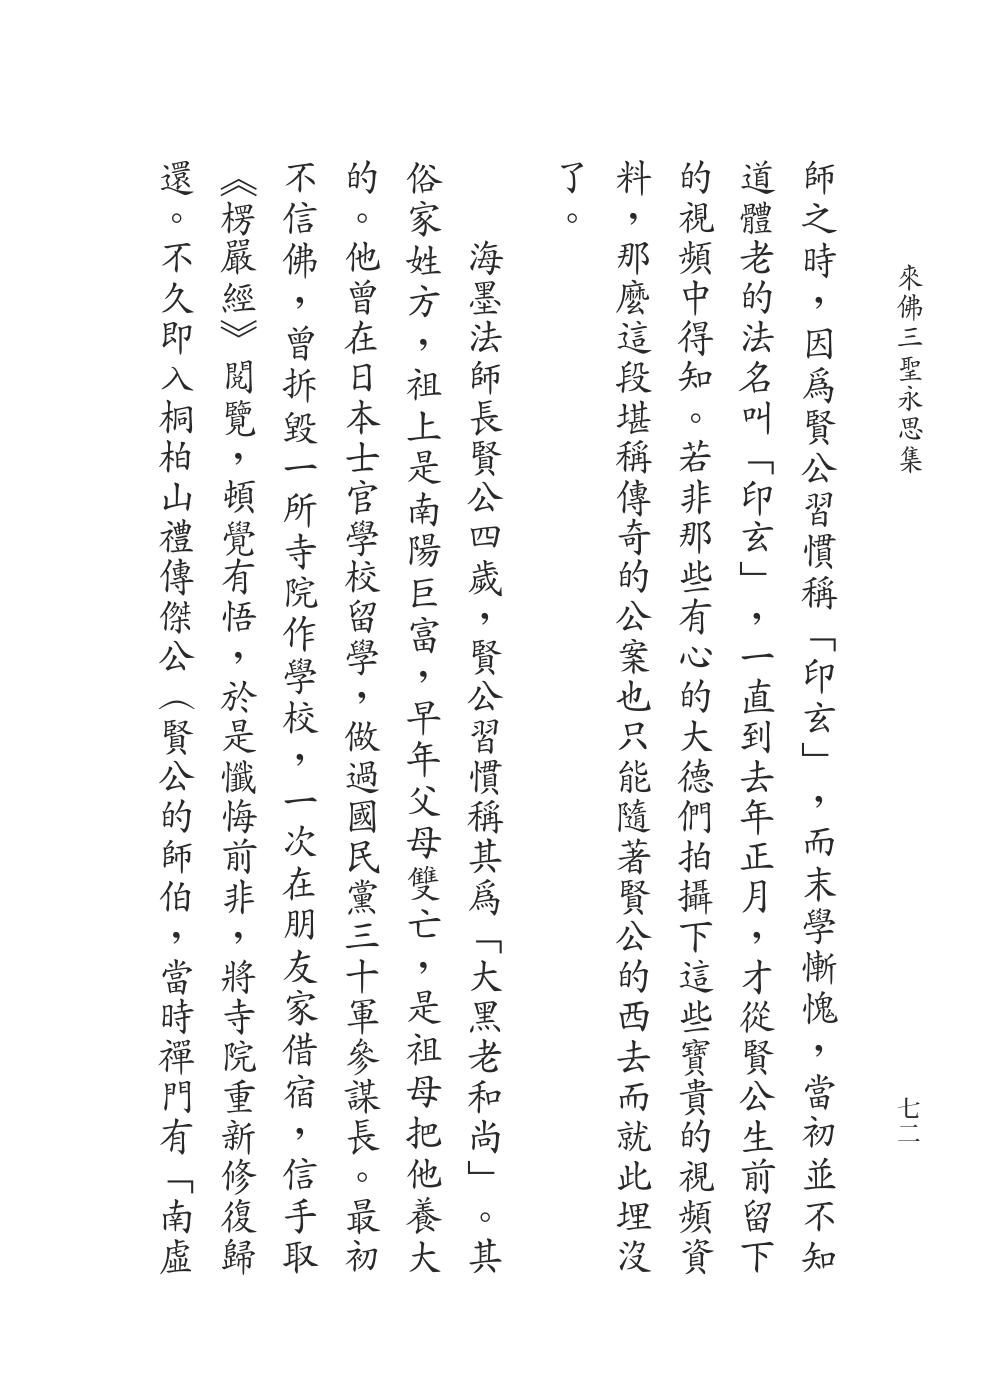 來佛三聖永思集
七二
師之時，因爲賢公習慣稱「印玄」，而末學慚愧，當初並不知
道體老的法名叫「印玄」，一直到去年正月，才從賢公生前留下
的視頻中得知。若非那些有心的大德們拍攝下這些寶貴的視頻資
料，那麼這段堪稱傳奇的公案也只能隨著賢公的西去而就此埋沒
了。
海墨法師長賢公四歲，賢公習慣稱其爲「大黑老和尚」。其
俗家姓方，祖上是南陽巨富，早年父母雙亡，是祖母把他養大
的。他曾在日本士官學校留學，做過國民黨三十軍參謀長。最初
不信佛，曾拆毀一所寺院作學校，一次在朋友家借宿，信手取
《楞嚴經》閱覽，頓覺有悟，於是懺悔前非，將寺院重新修復歸
還。不久即入桐柏山禮傳傑公（賢公的師伯，當時禪門有「南虛